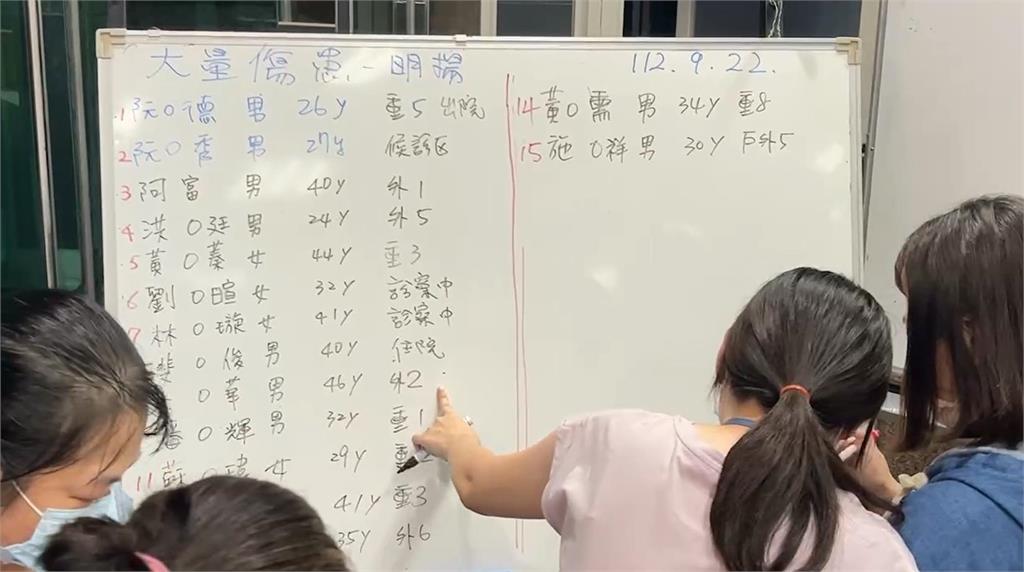 大量傷患-明揚 112.9.22.
1 阮O德 男 26y 重5 出院
2 阮O秀 男 27y 候診区
3 阿富 男 40y 外1
4 洪O廷 男 24y 外5
5 黃O蓁 女 44y 重3
6 劉O暄 女 32y 診察中
7 林O璇 女 41y 診察中
O俊 男 40y 住院
O華 男 46y 外2
O輝 男 32y 重1
11 蘇O 女 29y 重
41y 重3
35y 外6
14 黃O需 男 34y 重8
15 施O祥 男 30y 戶外5